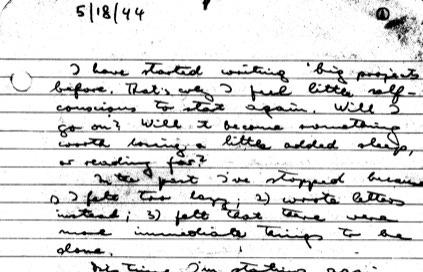 5/18/44
I have started writing 'big projects'
before. That's why I feel little self-
conscious to start again. Will I
go on? Will it become something
worth losing a little added sleep,
or reading for?
In the past I've stopped because
1) I felt too lazy; 2) wrote letters
instead; 3) felt that there were
more immediate things to be
done.
This time I'm starting again